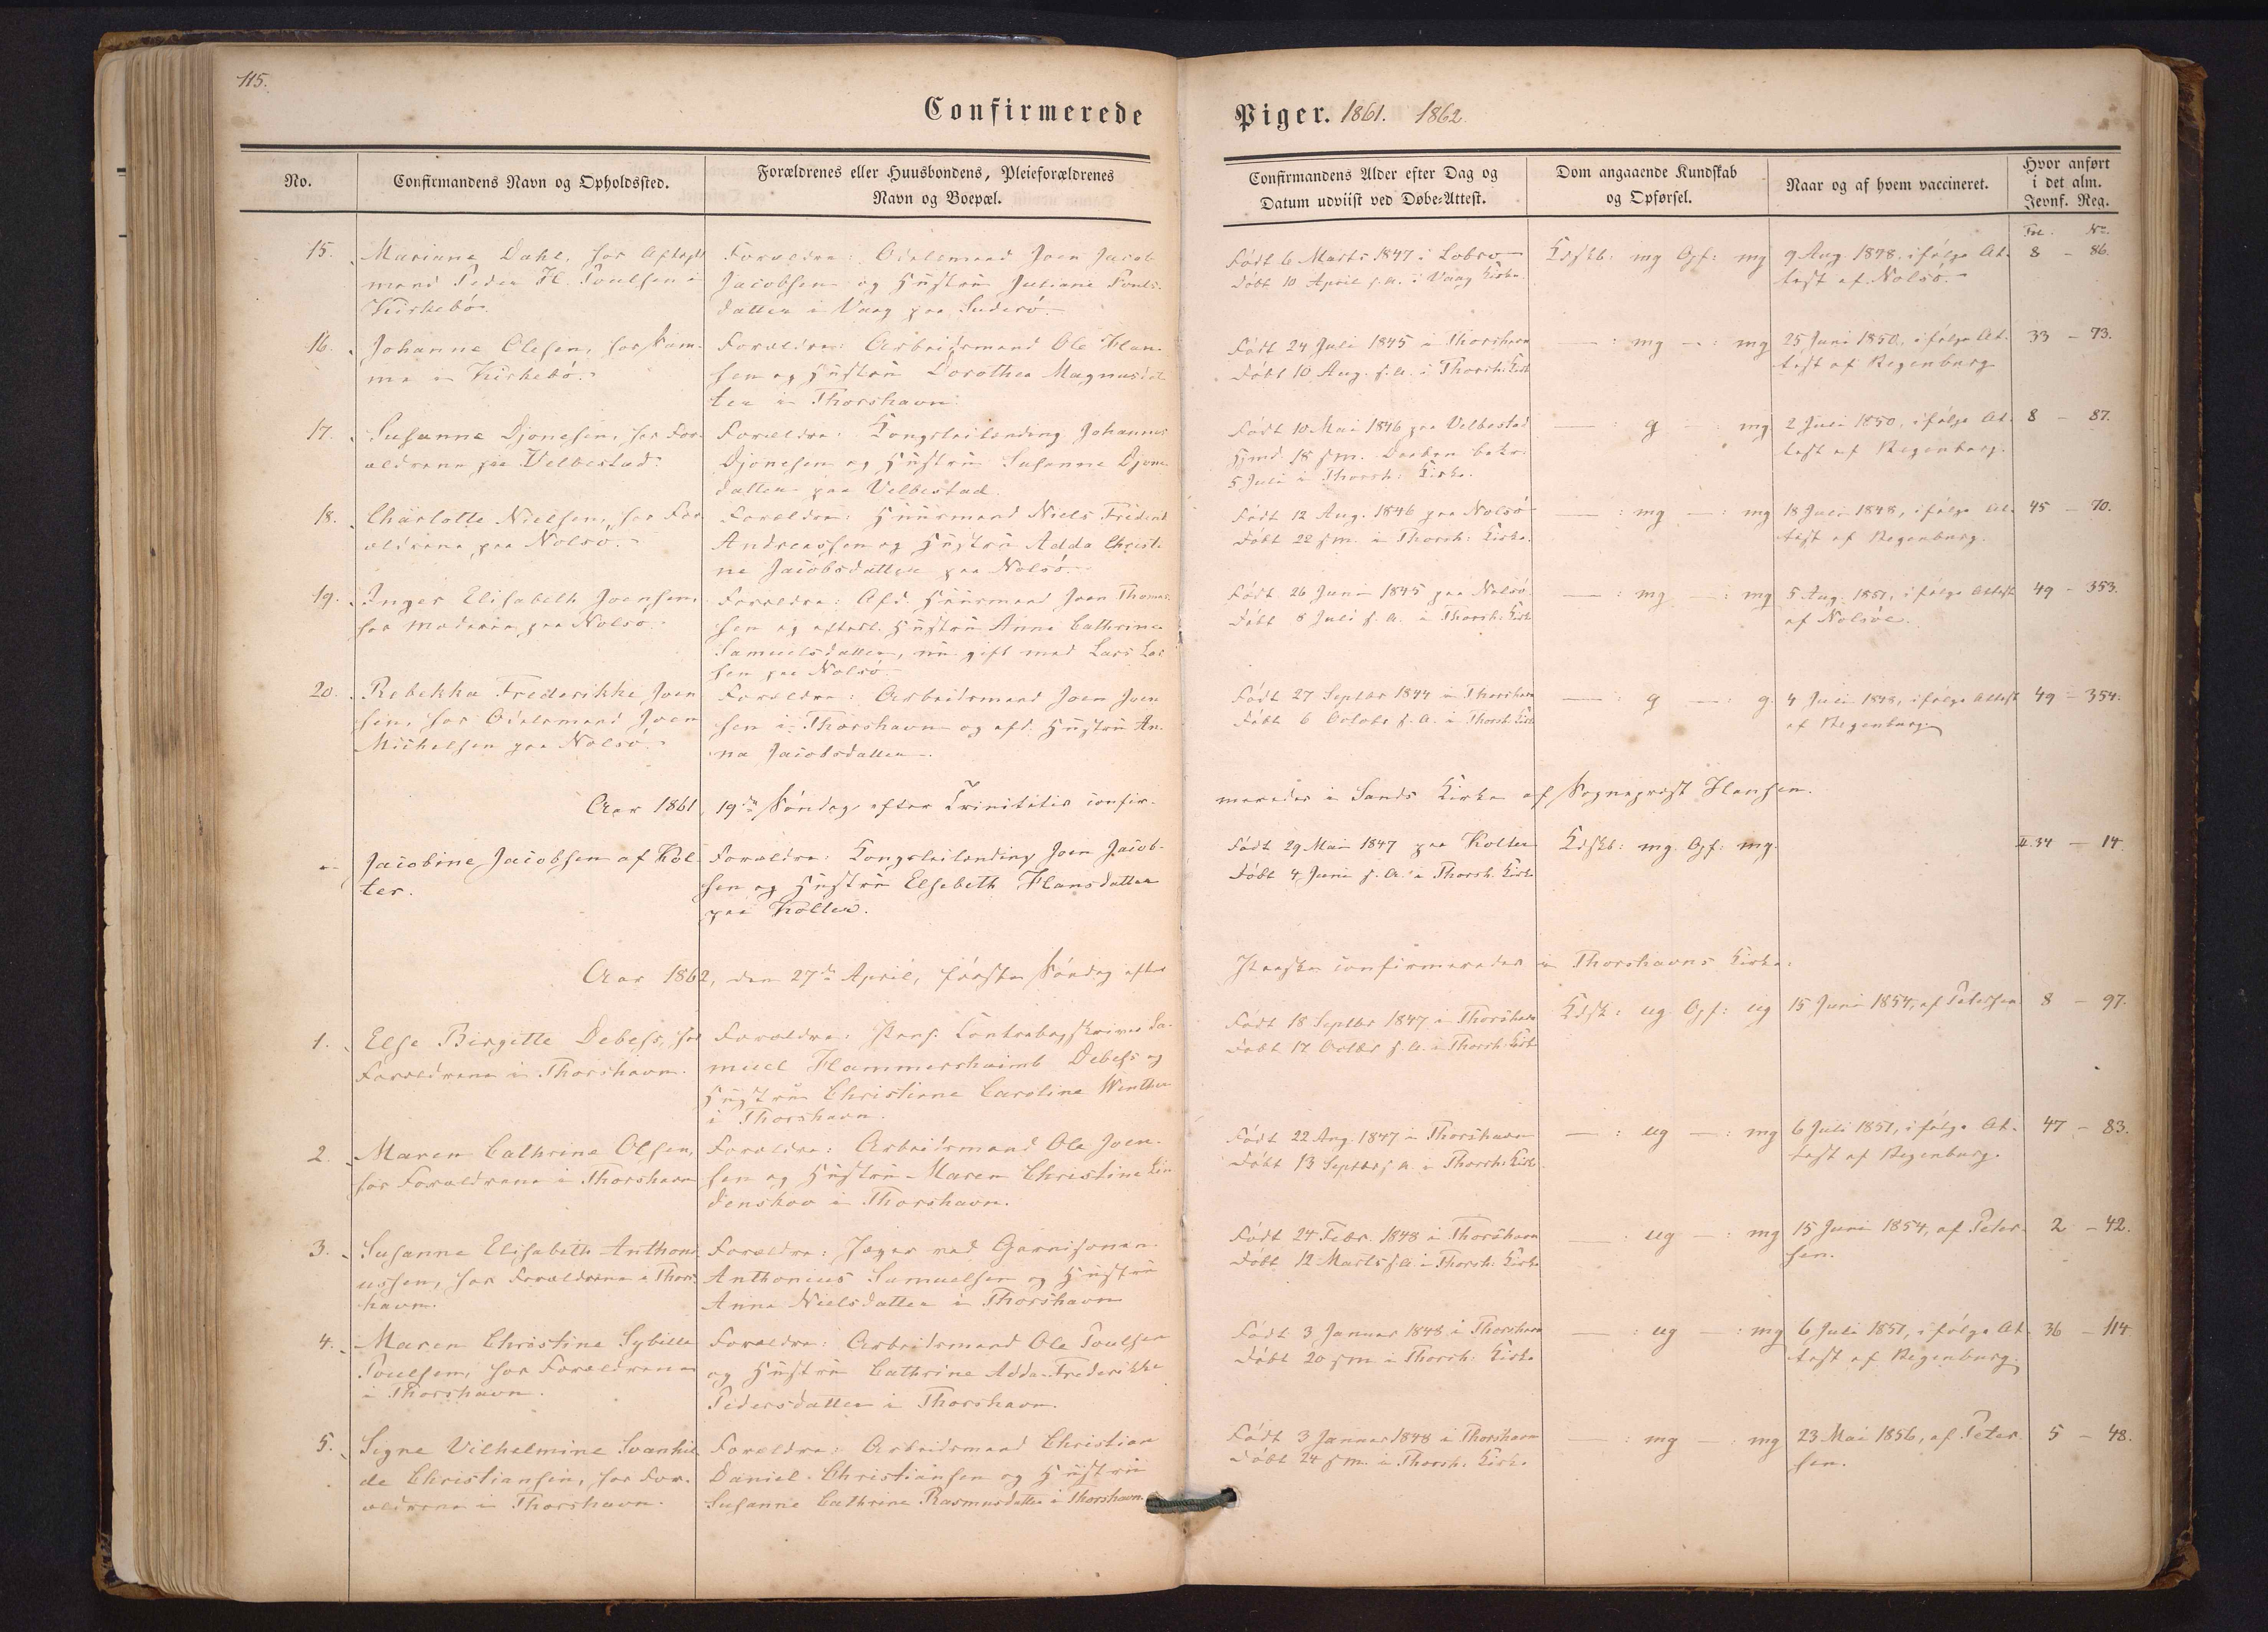 115.
Confirmerede Piger. 1861. 1862.
No.
Confirmandens Navn og Opholdssted.
Forældrenes eller Huusbondens, Pleieforældrenes
Navn og Boepæl.
Confirmandens Alder efter Dag og
Datum udviist ved Døbe-Attest.
Dom angaaende Kundskab
og Opførsel.
Naar og af hvem vaccineret.
Hvor anført
i det alm.
Jevnf. Reg.
Fol. No.
15.
Mariane Dahl, hos Aftægts
mand Peder H. Poulsen i
Kirkebö.
Forældre: Odelsmand Joen Jacob
Jacobsen og Hustru Juliane Pouls-
datter i Vaag paa Suderö.
Födt 6 Marts 1847 i Lobro
Döbt 10 April s.A. i Vaag Kirke.
Kdskb: mg Opf: mg
9 Aug. 1848, ifölge At-
test af Nolsö.
8 - 86.
16.
Johanne Olesen, hos Sam-
me i Kirkebö.
Forældre: Arbeidsmand Ole Han-
sen og Hustru Dorothea Magnusdat
ter i Thorshavn.
Födt 24 Juli 1845 i Thorshavn
Döbt 10 Aug. s.A. i Thorsh: Kirk
— : mg — : mg
25 Juni 1850, ifölge At-
test af Regenburg
33 - 73.
17.
Susanne Djonesen, hos For-
ældrene paa Velbestad.
Forældre: Kongsleilending Johannes
Djonesen og Hustru Susanne Djone
datter paa Velbestad.
Födt 10 Mai 1846 paa Velbestad
Hjmd. 18 s.m. Daaben bekr.
5 Juli i Thorsh: Kirke.
— : g — : mg
2 Juli 1850, ifölge At-
test af Regenburg.
8 - 87.
18.
Charlotte Nielsen, hos For
ældrene paa Nolsö.
Forældre: Huusmand Niels Fridrik
Andreassen og Hustru Adda Christi-
ne Jacobsdatter paa Nolsö.
Födt 12 Aug. 1846 paa Nolsö
Döbt 22 s.m. i Thorsh: Kirke.
— : mg — : mg
18 Juli 1848, ifölge At-
test af Regenburg.
45 - 70.
19.
Inger Elisabeth Joensen,
hos Moderen paa Nolsö.
Forældre: Afd. Huusmand Joen Thomas-
sen og efterl. Hustru Anne Cathrine
Samuelsdatter, nu gift med Lars Las-
sen paa Nolsö.
Födt 26 Juni 1845 paa Nolsö
Döbt 8 Juli s.A. i Thorsh: Kirk
— : mg — : mg
5 Aug. 1851, ifölge Attest
af Nolsöe.
49 - 353.
20.
Rebekka Frederikke Joen
sen, hos Odelsmand Joen
Michelsen paa Nolsö.
Forældre: Arbeidsmand Joen Joen
sen i Thorshavn og afd. Hustru An-
na Jacobsdatter.
Födt 27 Septbr 1844 i Thorshavn
Döbt 6 Octobr s.A. i Thorsh: Kirk
— : g — : g
4 Juli 1848, ifölge Attest
af Regenburg.
49 - 354.
Aar 1861, 19de Söndag efter Trinitatis confir-
meredes i Sands Kirke af Sognepræst Hansen.
Jacobine Jacobsen af Kol-
ter.
Forældre: Kongsleilending Joen Jacob-
sen og Hustru Elsebeth Hansdatter
paa Kolter.
Födt 29 Mai 1847 paa Kolter
Döbt 4 Juni s.A. i Thorsh. Kirke
Kdskb: mg. Opf: mg.
II. 34 - 14.
Aar 1862, den 27de April, förste Söndag efter
Paaske confirmeredes i Thorshavns Kirke:
1.
Else Birgitte Debess, hos
Forældrene i Thorshavn.
Forældre: Pens. Contrabogskriver Sa-
muel Hammershaimb Debess og
Hustru Christiane Caroline Winther
i Thorshavn.
Födt 18 Septbr 1847 i Thorshavn
Döbt 17 Octbr s.A. i Thorsh: Kirk
Kdsk: ug. Opf: ug
15 Juni 1854, af Petersen.
8 - 97.
2.
Maren Cathrine Olsen,
hos Forældrene i Thorshavn
Forældre: Arbeidsmand Ole Joen-
sen og Hustru Maren Christine Lin
denskov i Thorshavn.
Födt 22 Aug. 1847 i Thorshavn
Döbt 13 Septbr s.A. i Thorsh: Kirk
— : ug — : mg
6 Juli 1851, ifölge At-
test af Regenburg.
47 - 83.
3.
Susanne Elisabeth Anthoni
ussen, hos Forældrene i Thors-
havn.
Forældre: Jæger ved Garnisonen
Anthonius Samuelsen og Hustru
Anna Nielsdatter i Thorshavn
Födt 24 Febr. 1848 i Thorshavn
Döbt 12 Marts s.A. i Thorsh: Kirke
— : ug — : mg
15 Juni 1854, af Peter-
sen.
2 - 42.
4.
Maren Christine Sybille
Poulsen, hos Forældrene
i Thorshavn.
Forældre: Arbeidsmand Ole Poulsen
og Hustru Cathrine Adda Frederikke
Pedersdatter i Thorshavn.
Födt 3 Januar 1848 i Thorshavn
Döbt 20 s.m. i Thorsh: Kirke
— : ug — : mg
6 Juli 1851, ifölge At-
test af Regenburg.
36 - 114
5.
Signe Vilhelmine Svanhil
de Christiansen, hos For-
ældrene i Thorshavn.
Forældre: Arbeidsmand Christian
Daniel Christiansen og Hustru
Susanne Cathrine Rasmusdatter i Thorshavn.
Födt 3 Januar 1848 i Thorshavn
Döbt 24 s.m. i Thorsh. Kirke
— : mg — : mg
23 Mai 1856, af Peter-
sen.
5 - 48.